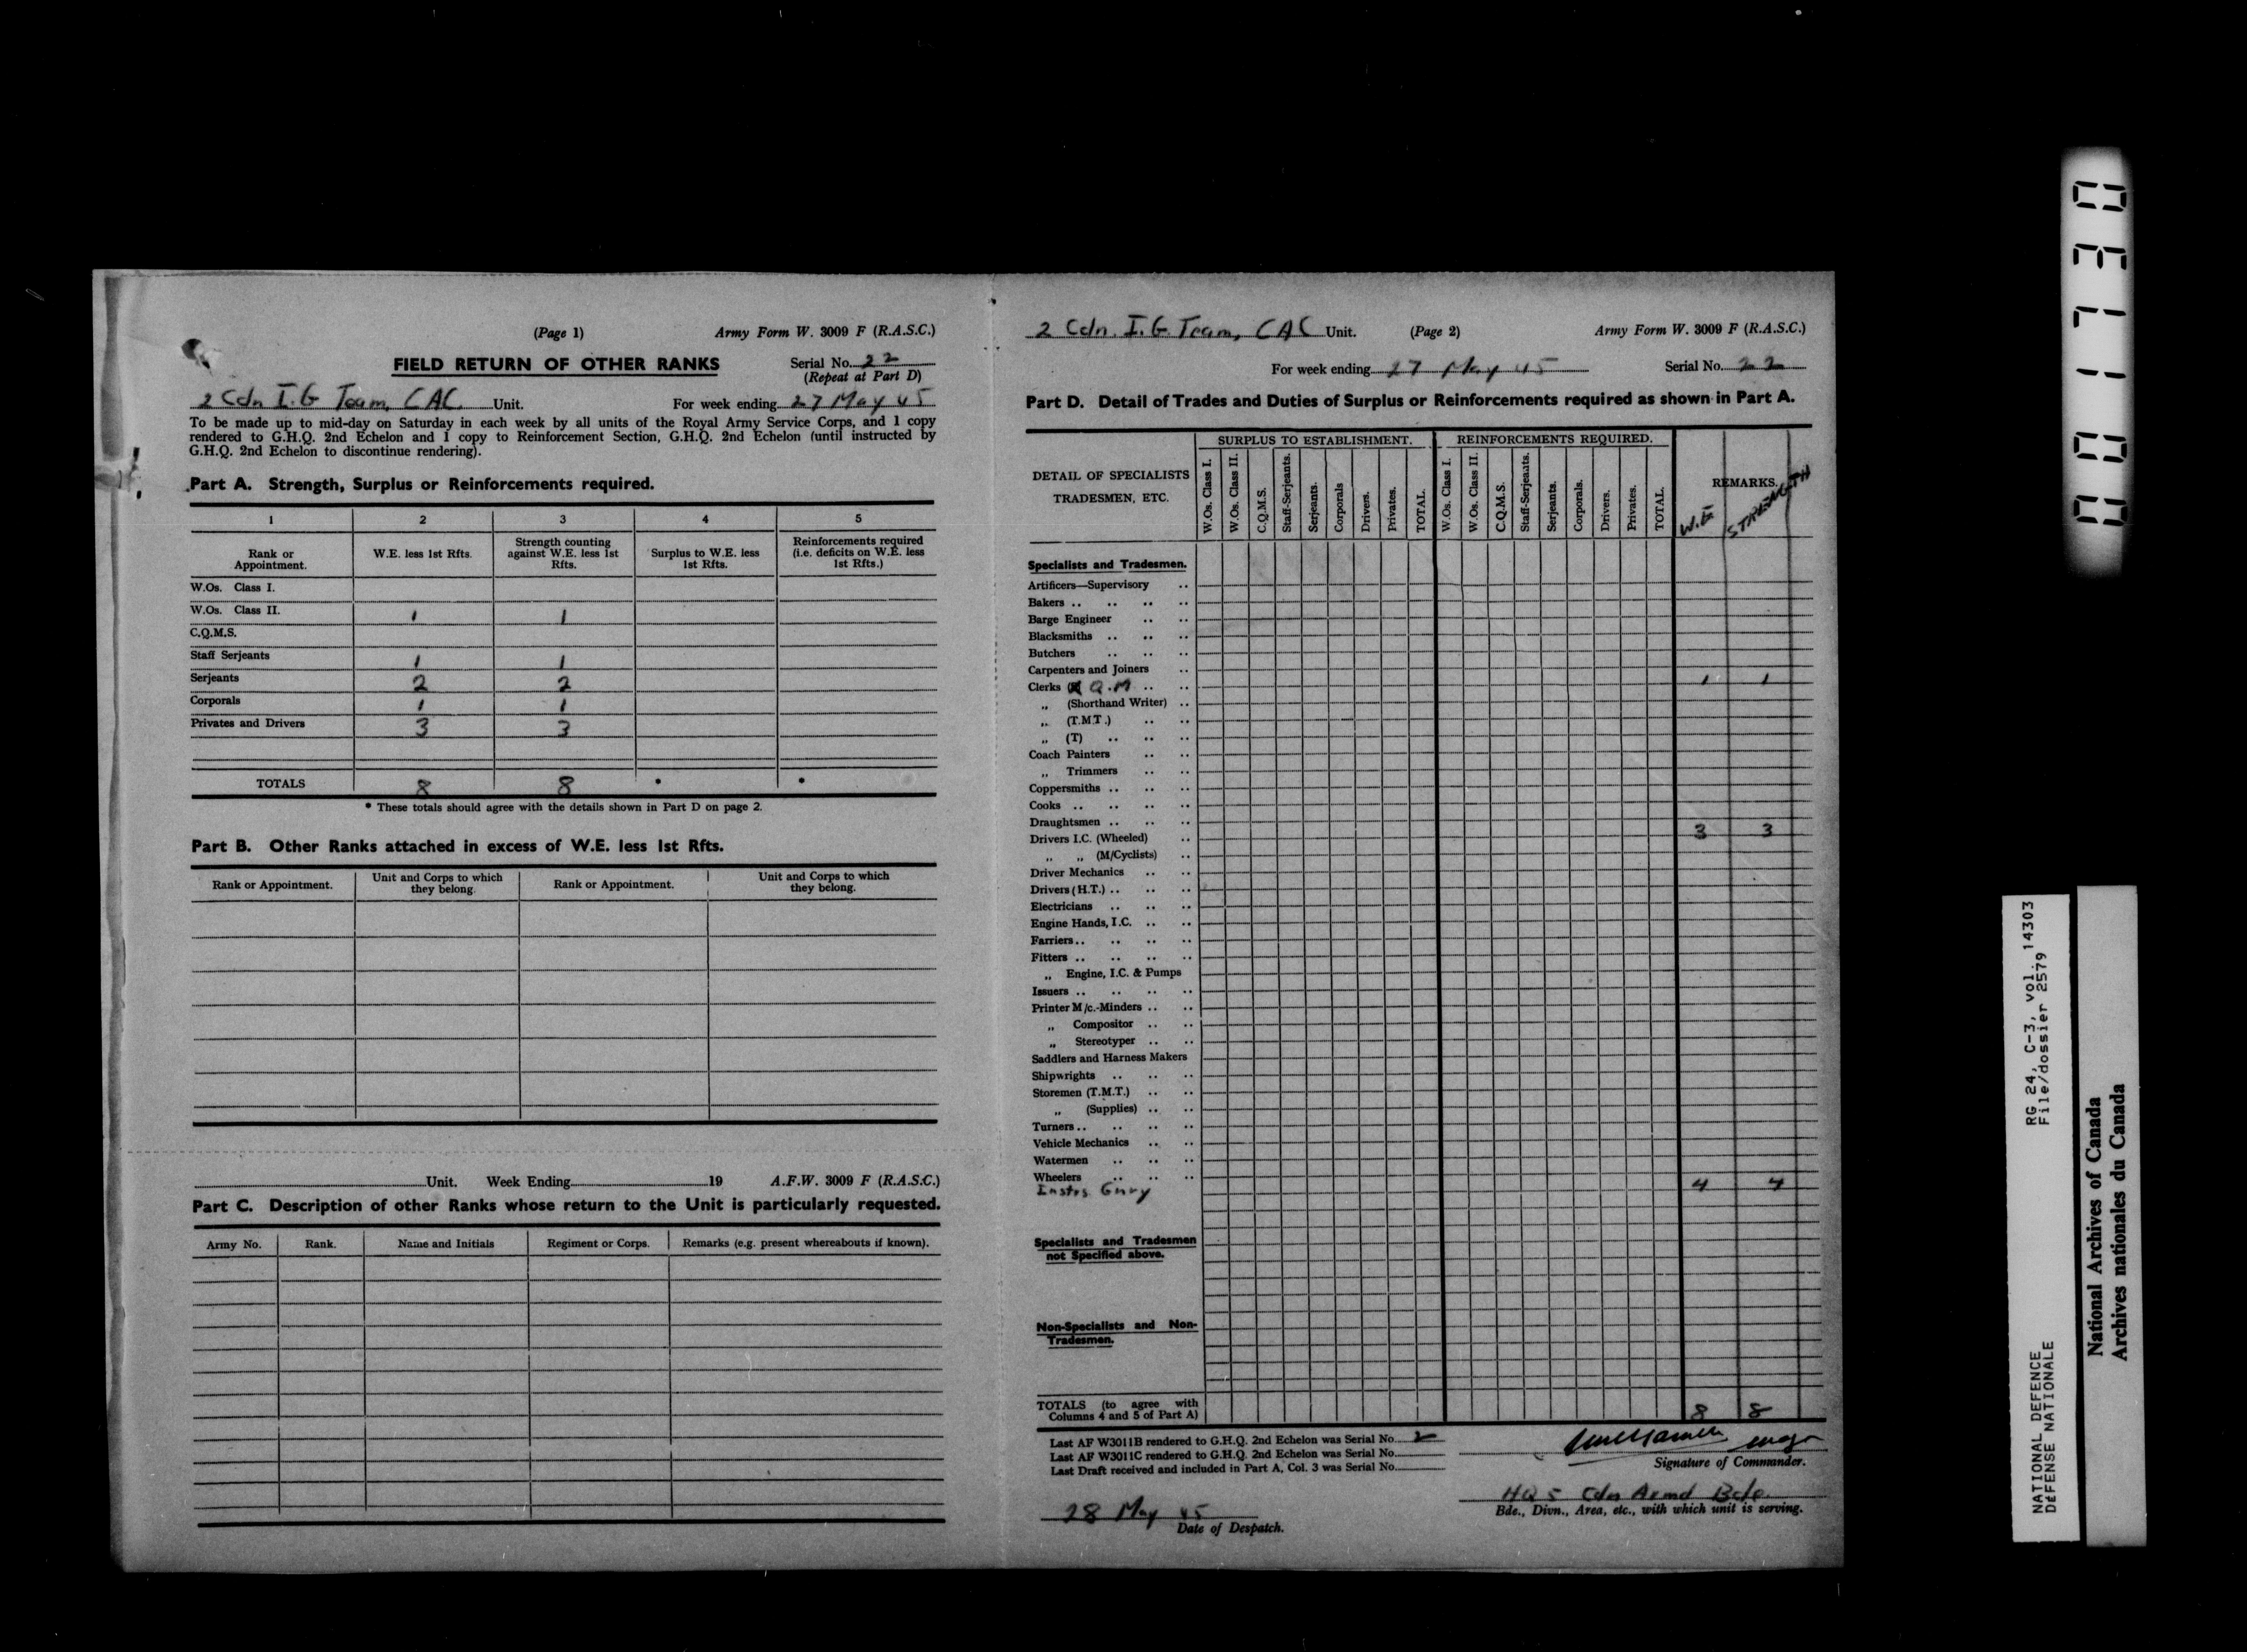 (Page 1) Army Form W. 3009 F (R.A.S.C.)
FIELD RETURN OF OTHER RANKS Serial No. 22
(Repeat at Part D)
2 Cdn I.G Team, CAC. Unit. For week ending 27 May 45
To be made up to mid-day on Saturday in each week by all units of the Royal Army Service Corps, and 1 copy
rendered to G.H.Q. 2nd Echelon and 1 copy to Reinforcement Section, G.H.Q. 2nd Echelon (until instructed by
G.H.Q. 2nd Echelon to discontinue rendering).
Part A. Strength, Surplus or Reinforcements required.
1 2 3 4 5
Rank or Appointment. W.E. less 1st Rfts. Strength counting against W.E. less 1st Rfts. Surplus to W.E. less 1st Rfts. Reinforcements required (i.e. deficits on W.E. less 1st Rfts.)
W.Os. Class I.
W.Os. Class II. 1 1
C.Q.M.S.
Staff Serjeants 1 1
Serjeants 2 2
Corporals 1 1
Privates and Drivers 3 3
TOTALS 8 8 * *
* These totals should agree with the details shown in Part D on page 2.
Part B. Other Ranks attached in excess of W.E. less 1st Rfts.
Rank or Appointment. Unit and Corps to which they belong. Rank or Appointment. Unit and Corps to which they belong.
Unit. Week Ending 19 A.F.W. 3009 F (R.A.S.C.)
Part C. Description of other Ranks whose return to the Unit is particularly requested.
Army No. Rank. Name and Initials Regiment or Corps. Remarks (e.g. present whereabouts if known).
2 Cdn. I.G. Team, CAC Unit. (Page 2) Army Form W. 3009 F (R.A.S.C.)
For week ending 27 May 45 Serial No. 22
Part D. Detail of Trades and Duties of Surplus or Reinforcements required as shown in Part A.
DETAIL OF SPECIALISTS TRADESMEN, ETC. SURPLUS TO ESTABLISHMENT. REINFORCEMENTS REQUIRED. REMARKS.
W.Os. Class I. W.Os. Class II. C.Q.M.S. Staff-Serjeants. Serjeants. Corporals Drivers. Privates. TOTAL. W.Os. Class I. W.Os. Class II. C.Q.M.S. Staff-Serjeants. Serjeants. Corporals. Drivers. Privates. TOTAL. W.E STRENGTH
Specialists and Tradesmen.
Artificers—Supervisory ..
Bakers .. .. .. ..
Barge Engineer .. ..
Blacksmiths .. .. ..
Butchers .. .. ..
Carpenters and Joiners ..
Clerks Q.M .. .. 1 1
„ (Shorthand Writer) ..
„ (T.M.T.) .. ..
„ (T) .. .. ..
Coach Painters .. ..
„ Trimmers .. ..
Coppersmiths .. .. ..
Cooks .. .. .. ..
Draughtsmen .. .. ..
Drivers I.C. (Wheeled) .. 3 3
„ „ (M/Cyclists) ..
Driver Mechanics .. ..
Drivers (H.T.) .. .. ..
Electricians .. .. ..
Engine Hands, I.C. .. ..
Farriers .. .. .. ..
Fitters .. .. .. ..
„ Engine, I.C. & Pumps
Issuers .. .. .. ..
Printer M/c.-Minders .. ..
„ Compositor .. ..
„ Stereotyper .. ..
Saddlers and Harness Makers
Shipwrights .. .. ..
Storemen (T.M.T.) .. ..
„ (Supplies) .. ..
Turners .. .. .. ..
Vehicle Mechanics .. ..
Watermen .. .. ..
Wheelers .. .. ..
Instrs Gnry 4 4
Specialists and Tradesmen
not Specified above.
Non-Specialists and Non-
Tradesmen.
TOTALS (to agree with
Columns 4 and 5 of Part A) 8 8
Last AF W3011B rendered to G.H.Q. 2nd Echelon was Serial No. 2
Last AF W3011C rendered to G.H.Q. 2nd Echelon was Serial No.
Last Draft received and included in Part A, Col. 3 was Serial No.
Major
Signature of Commander.
HQ 5 Cdn Armd Bde.
Bde., Divn., Area, etc., with which unit is serving.
28 May 45
Date of Despatch.
001730
NATIONAL DEFENCE RG 24, C-3, vol. 14303
DÉFENSE NATIONALE File/dossier 2579
National Archives of Canada
Archives nationales du Canada